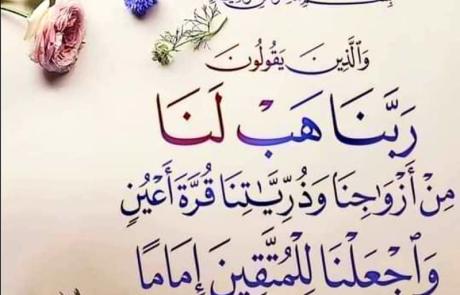 وَالَّذِينَ يَقُولُونَ
رَبَّنَا هَبْ لَنَا
مِنْ أَزْوَٰجِنَا وَذُرِّيَّـٰتِنَا قُرَّةَ أَعْيُنٍ
وَٱجْعَلْنَا لِلْمُتَّقِينَ إِمَامًا